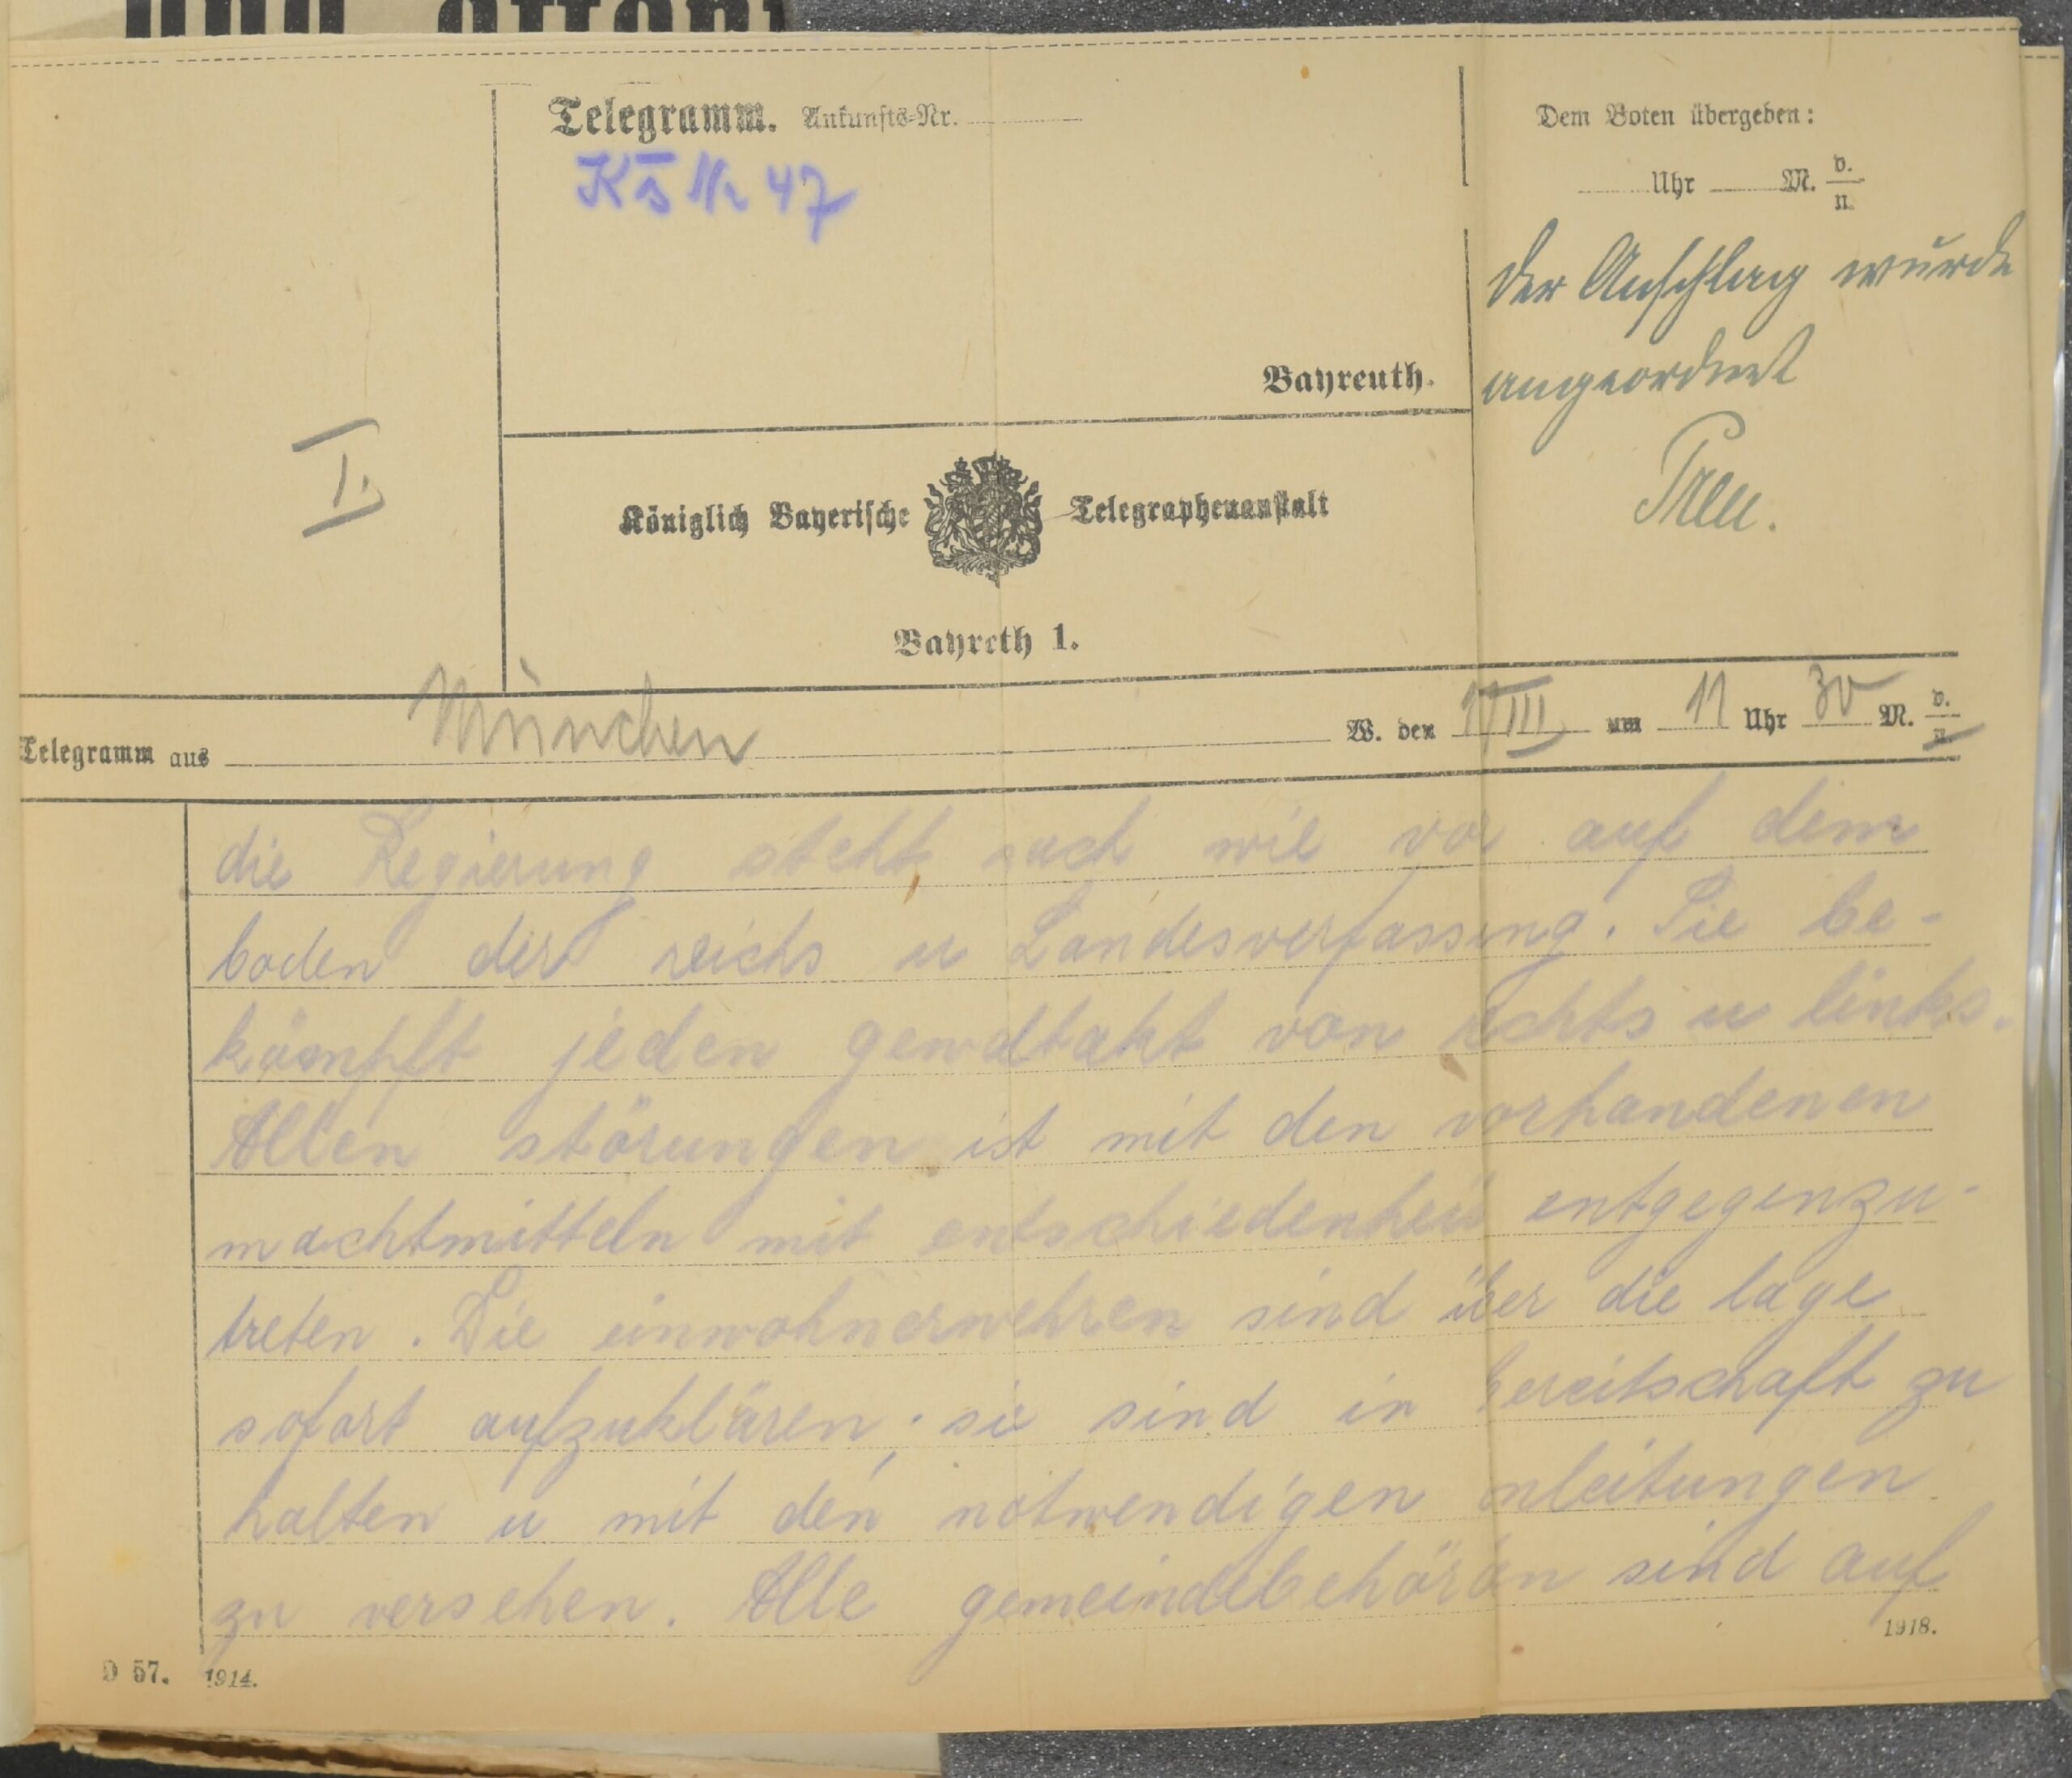 und offen
Telegramm. Ankunfts-Nr.
Nr 47
Bayreuth.
Dem Boten übergeben:
Uhr M. v./n.
Der Anschlag wurde
angeordnet
Preu.
I.
Königlich Bayerische Telegraphenanstalt
Bayreth 1.
Telegramm aus München W. den III um 11 Uhr 30 M. v./n.
die Regierung steht nach wie vor auf dem
boden der reichs u Landesverfassung. Sie be-
kämpft jeden gewaltakt von rechts u links.
Allen störungen ist mit den vorhandenen
machtmitteln mit entschiedenheit entgegenzu-
treten. Die einwohnerwehren sind über die lage
sofort aufzuklären; sie sind in bereitschaft zu
halten u mit den notwendigen anleitungen
zu versehen. Alle gemeindebehörden sind auf
D 57. 1914.
1918.